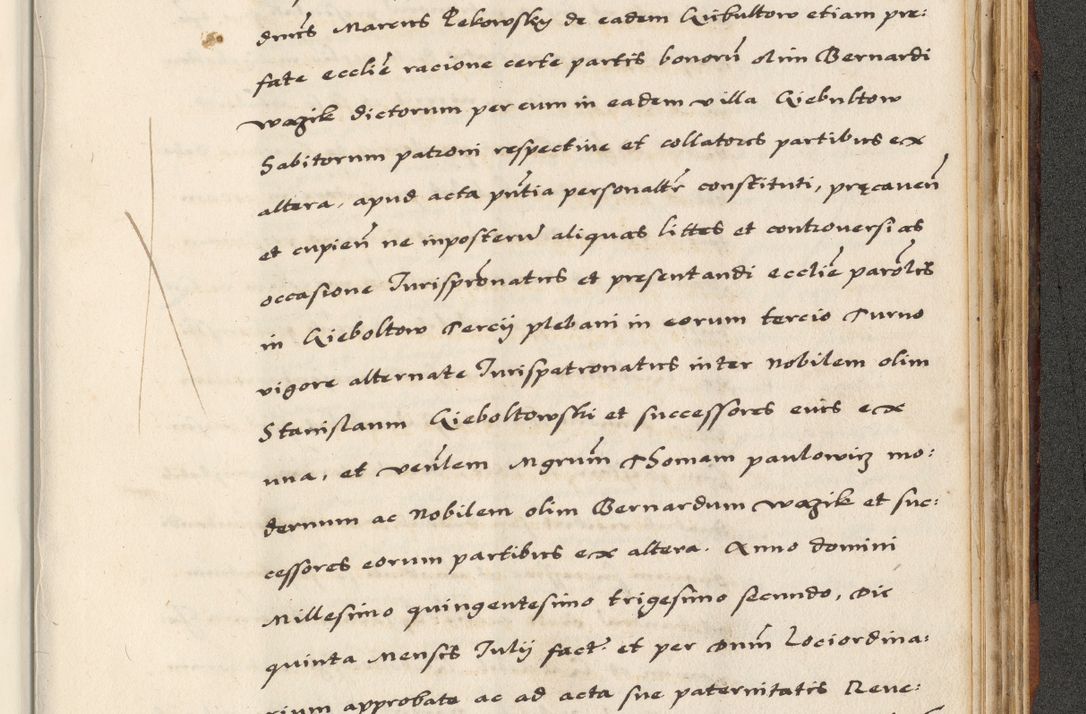 dnus Marcus Rekowsky de eadem Kiebultow etiam pre:
fate ecclie racione certe partis bonoru olim Bernardi
wazik dictorum per eum in eadem villa Kiebultow
habitorum patroni respective et collatores partibus ex
altera, apud acta pntia personaltr constituti, precaven
et cupien ne inposteru aliquas littes et controversias
occasione Jurispronatus et presentandi ecclie parolis
in Kieboltow Tercij plebani in eorum tercio Turno
vigore alternate Jurispatronatus inter Nobilem olim
Stanislaum Kieboltowski et successores eius ex
una, et venlem Mgrum Thomam paulowicz mo:
dernum ac Nobilem olim Bernardum wazik et suc:
cessores eorum partibus ex altera. Anno domini
Millesimo quingentesimo trigesimo secundo, Die
quinta Mensis Julij fact. et per Dnm Lociordina:
rium approbate ac ad acta sue paternitatis Reve: